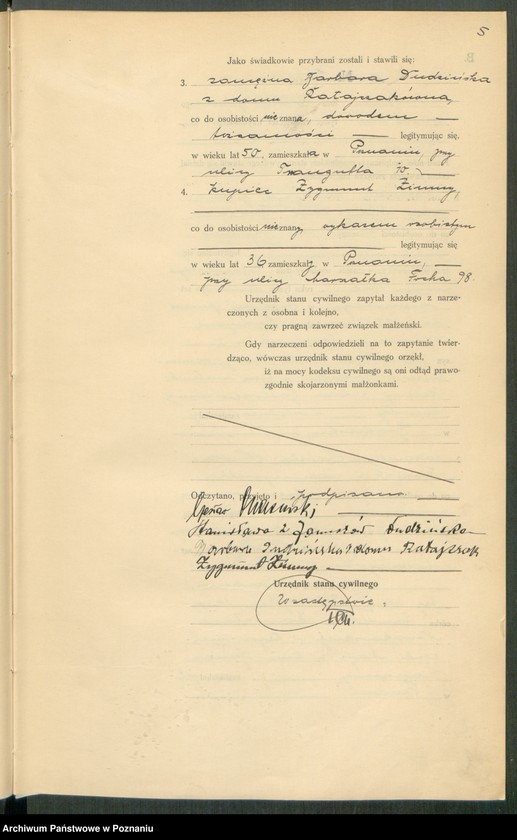 5
Jako świadkowie przybrani zostali i stawili się:
3. zamężna Barbara Dudzińska
z domu Ratajczakówna,
co do osobistości nieznana, dowodem
tożsamości legitymując się,
w wieku lat 50, zamieszkała w Poznaniu, przy
ulicy Traugutta 10.
4. kupiec Zygmunt Zimny,
co do osobistości nieznany, wykazem osobistym
legitymując się
w wieku lat 36 zamieszkały w Poznaniu,
przy ulicy Marszałka Focha 98
Urzędnik stanu cywilnego zapytał każdego z narze-
czonych z osobna i kolejno,
czy pragną zawrzeć związek małżeński.
Gdy narzeczeni odpowiedzieli na to zapytanie twier-
dząco, wówczas urzędnik stanu cywilnego orzekł,
iż na mocy kodeksu cywilnego są oni odtąd prawo-
zgodnie skojarzonymi małżonkami.
Odczytano, przyjęto i podpisano
Stanisława z Dudzińska
Barbara Dudzińska z domu Ratajczak
Zygmunt Zimny
Urzędnik stanu cywilnego
W zastępstwie:
Archiwum Państwowe w Poznaniu